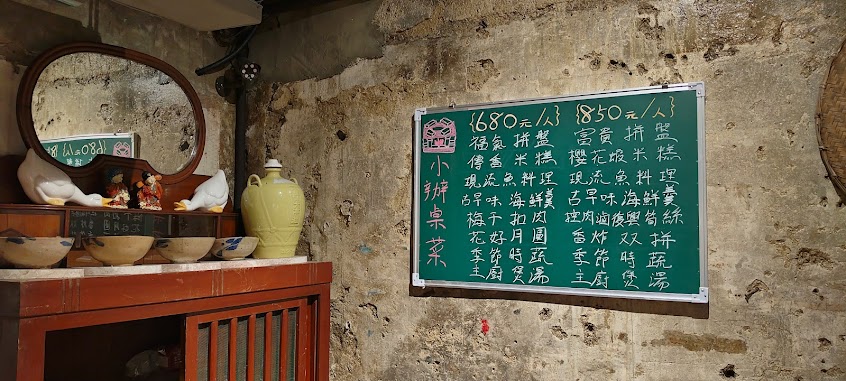 小辦桌菜
{680元/人}
福氣拼盤
傳香米糕
現流魚料理
古早味海鮮羹
梅干扣肉
花好月圓
季節時蔬
主厨煲湯
{850元/人}
富貴拼盤
櫻花蝦米糕
現流魚料理
古早味海鮮羹
焢肉滷復興筍絲
香炸双拼
季節時蔬
主厨煲湯